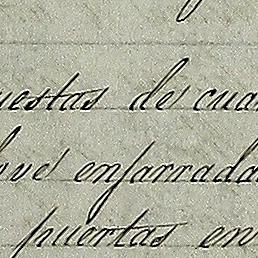 uestas de cua
lave enfarrada
puertas en